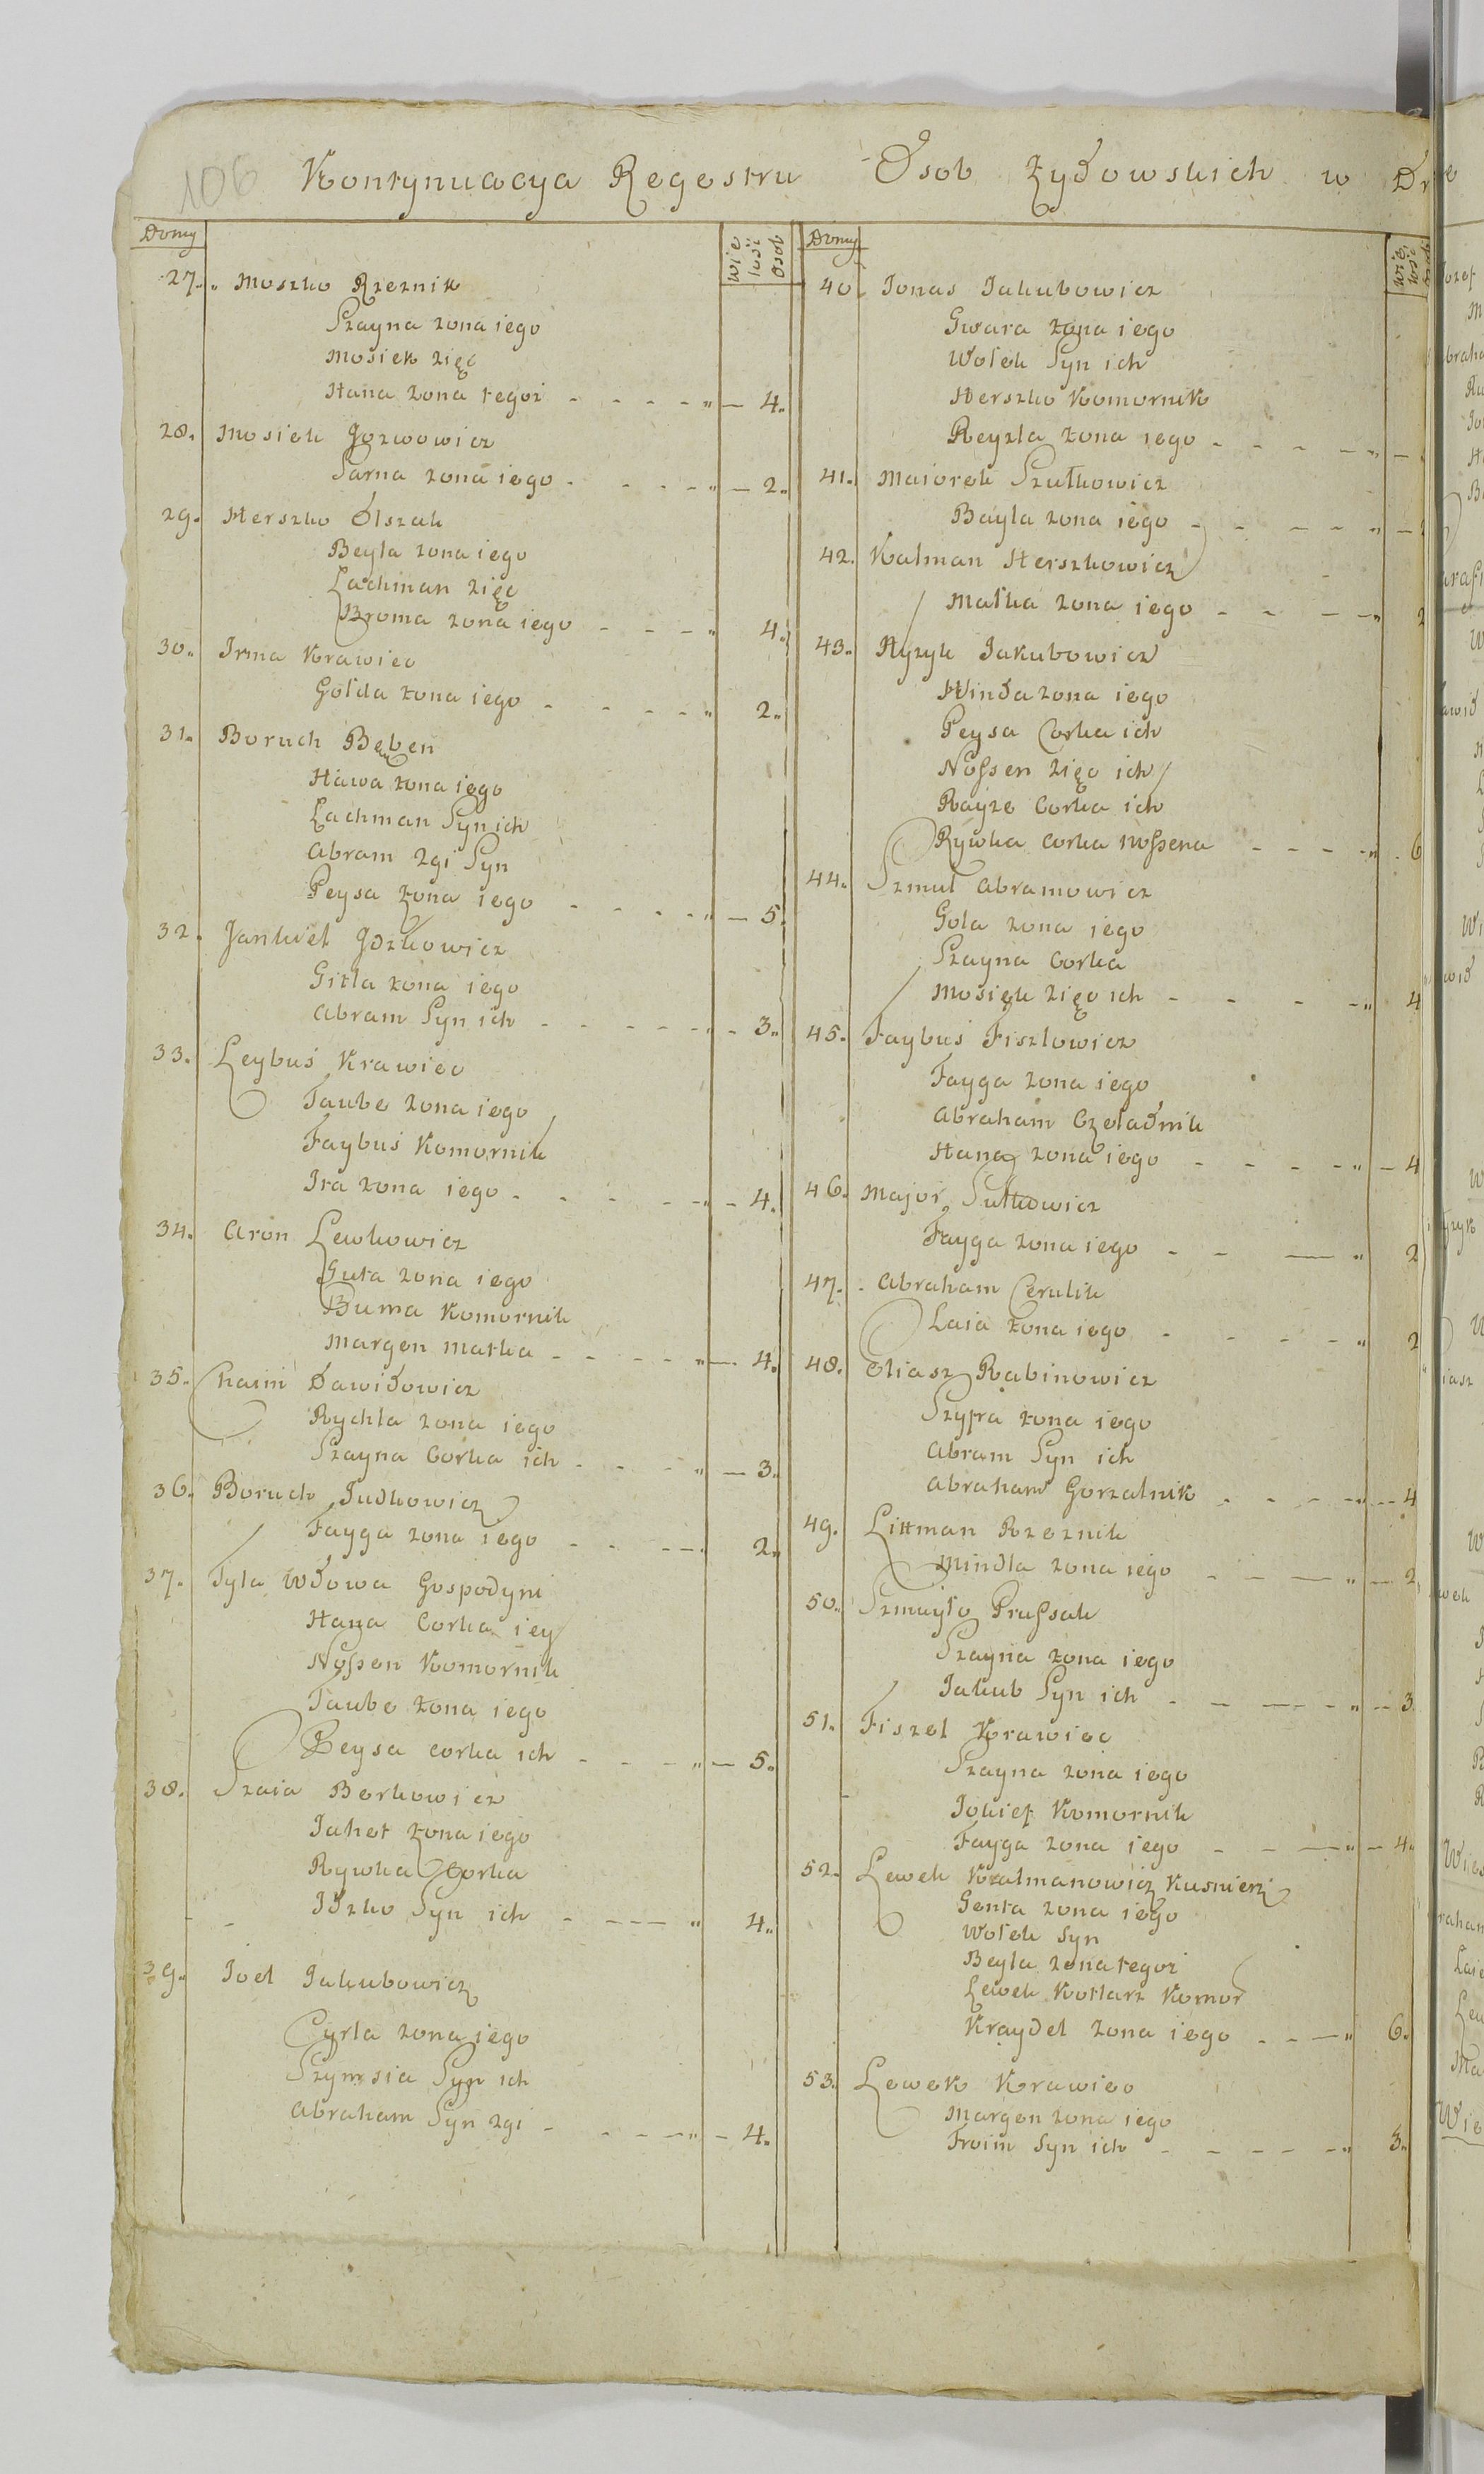 106
Kontynuacya Regestru Osob Zydowskich w
Domy
wie lość Osob
27. Moszko Rzeznik
Szayna zona iego
Mosiek zięć
Hana zona tegoż 4.
28. Mosiek Jozwowicz
Sarna zona iego 2.
29. Herszko Olszak
Beyla zona iego
Lachman zięć
Broma zona iego 4.
30. Irma Krawiec
Golda zona iego 2.
31. Boruch Bęben
Hawa zona iego
Lachman Syn ich
Abram 2gi Syn
Peysa zona iego 5.
32. Jankiel Jozkowicz
Gitla zona iego
Abram Syn ich 3.
33. Leybuś Krawiec
Taube zona iego
Faybuś Komornik
Ira zona iego 4.
34. Aron Lewkowicz
Guta zona iego
Buma Komornik
Margen Matka 4.
35. Chaim Dawidowicz
Rychla zona iego
Szayna Corka ich 3.
36. Boruch Judkowicz
Fayga zona iego 2.
37. Tyla Wdowa Gospodyni
Hana Corka iey
Nossen Komornik
Taube zona iego
Peysa corka ich 5.
38. Szaia Berkowicz
Jahet zona iego
Rywka Corka
Iszko Syn ich 4.
39. Joel Jakubowicz
Cyrla zona iego
Szymsia Syn ich
Abraham Syn 2gi 4.
Domy
40. Jonas Jakubowicz
Gwara zona iego
Wolek Syn ich
Herszko Komornik
Reyzla zona iego
41. Maiorek Szutkowicz
Bayla zona iego
42. Kalman Herszkowicz
Malka zona iego 2
43. Hyzyk Jakubowicz
Hinda zona iego
Peysa Corka ich
Nossen zięc ich
Rayze Corka ich
Rywka Corka Nossena 6
44. Szmul Abramowicz
Gola zona iego
Szayna Corka
Mosiek zięc ich 4
45. Faybuś Fiszlowicz
Fayga zona iego
Abraham Czeladnik
Hana zona iego 4
46. Major Sutkowicz
Fayga zona iego 2
47. Abraham Cerulik
Laia zona iego 2
48. Eliasz Rabinowicz
Szyfra zona iego
Abram Syn ich
Abraham Gorzalnik 4
49. Littman Rzeznik
Mindla zona iego 2.
50. Szmuyło Prussak
Szayna zona iego
Jakub Syn ich 3
51. Fiszel Krawiec
Szayna zona iego
Jokief Komornik
Fayga zona iego 4.
52. Lewek Kalmanowicz Kusnierz
Genta zona iego
Wolek Syn
Beyla zona tegoz
Lewek Kotlarz Komor
Kraydel zona iego 6.
53. Lewek Krawiec
Margen zona iego
Froim Syn ich 3.